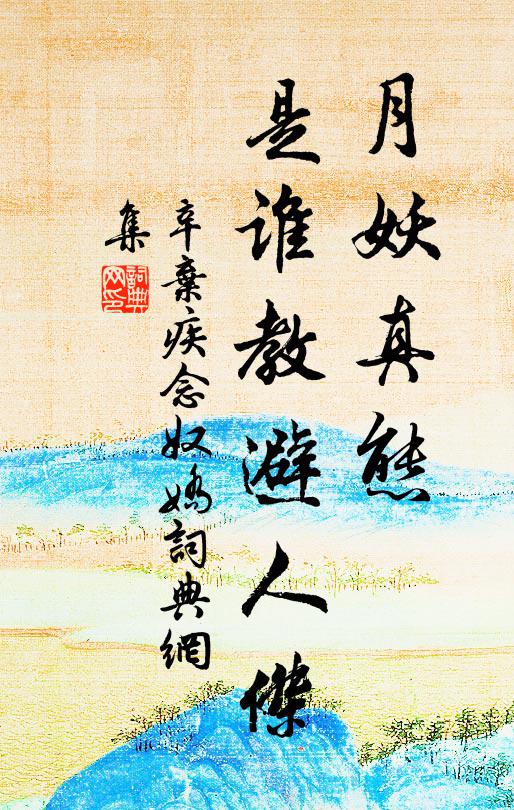 月妖真態
是谁教避人傑
辛棄疾念奴嬌詞典網
集
詞典
网印